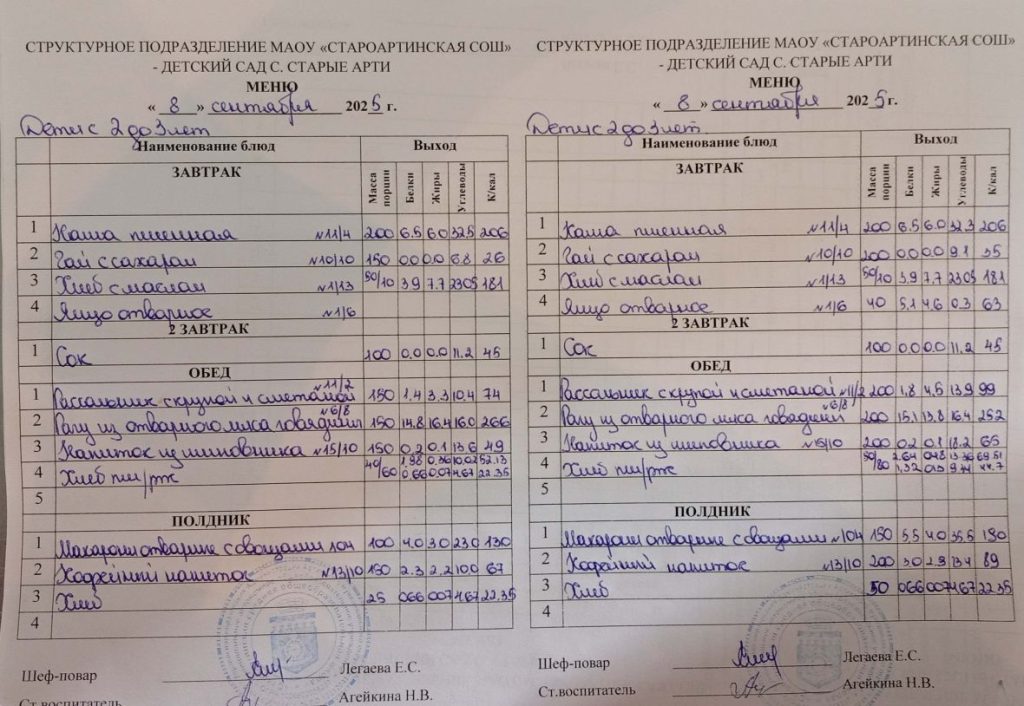 СТРУКТУРНОЕ ПОДРАЗДЕЛЕНИЕ МАОУ «СТАРОАРТИНСКАЯ СОШ»
- ДЕТСКИЙ САД С. СТАРЫЕ АРТИ
МЕНЮ
« 8 » сентября 2025 г.
Дети с 2 до 3 лет
Наименование блюд Выход
ЗАВТРАК Масса порции Белки Жиры Углеводы К/кал
1 Каша пшенная №11/4 200 6.5 6.0 32.5 206
2 Чай с сахаром №10/10 150 0.0 0.0 6.8 26
3 Хлеб с маслом №1/13 50/10 3.9 7.7 23.05 181
4 Яйцо отварное №1/6
2 ЗАВТРАК
1 Сок 100 0.0 0.0 11.2 45
ОБЕД
1 Рассольник с крупой и сметаной №11/2 150 1.4 3.3 10.4 74
2 Рагу из отварного мяса говядины №6/8 150 14.8 16.4 16.0 266
3 Напиток из шиповника №15/10 150 0.2 0.1 13.6 49
4 Хлеб пш/рж 40/60 1.98 0.36 10.02 52.13
0.66 0.07 4.67 22.35
5
ПОЛДНИК
1 Макароны отварные с овощами 104 100 4.0 3.0 23.0 130
2 Кофейный напиток №13/10 150 2.3 2.2 10.0 67
3 Хлеб 25 0.66 0.07 4.67 22.35
4
Шеф-повар Легаева Е.С.
Ст.воспитатель Агейкина Н.В.
СТРУКТУРНОЕ ПОДРАЗДЕЛЕНИЕ МАОУ «СТАРОАРТИНСКАЯ СОШ»
- ДЕТСКИЙ САД С. СТАРЫЕ АРТИ
МЕНЮ
« 8 » сентября 2025 г.
Дети с 2 до 3 лет
Наименование блюд Выход
ЗАВТРАК Масса порции Белки Жиры Углеводы К/кал
1 Каша пшенная №11/4 200 6.5 6.0 32.3 206
2 Чай с сахаром №10/10 200 0.0 0.0 9.1 35
3 Хлеб с маслом №1/13 50/10 3.9 7.7 23.05 181
4 Яйцо отварное №1/6 40 5.1 4.6 0.3 63
2 ЗАВТРАК
1 Сок 100 0.0 0.0 11.2 45
ОБЕД
1 Рассольник с крупой и сметаной №11/2 200 1.8 4.5 13.9 99
2 Рагу из отварного мяса говядины №6/8 200 15.1 13.8 16.4 252
3 Напиток из шиповника №15/10 200 0.2 0.1 18.2 65
4 Хлеб пш/рж 50/80 2.64 0.48 13.36 69.51
1.32 0.13 9.74 44.7
5
ПОЛДНИК
1 Макароны отварные с овощами №104 150 5.5 4.0 35.5 190
2 Кофейный напиток №13/10 200 3.0 2.9 13.4 89
3 Хлеб 50 0.66 0.07 4.67 22.35
4
Шеф-повар Легаева Е.С.
Ст.воспитатель Агейкина Н.В.